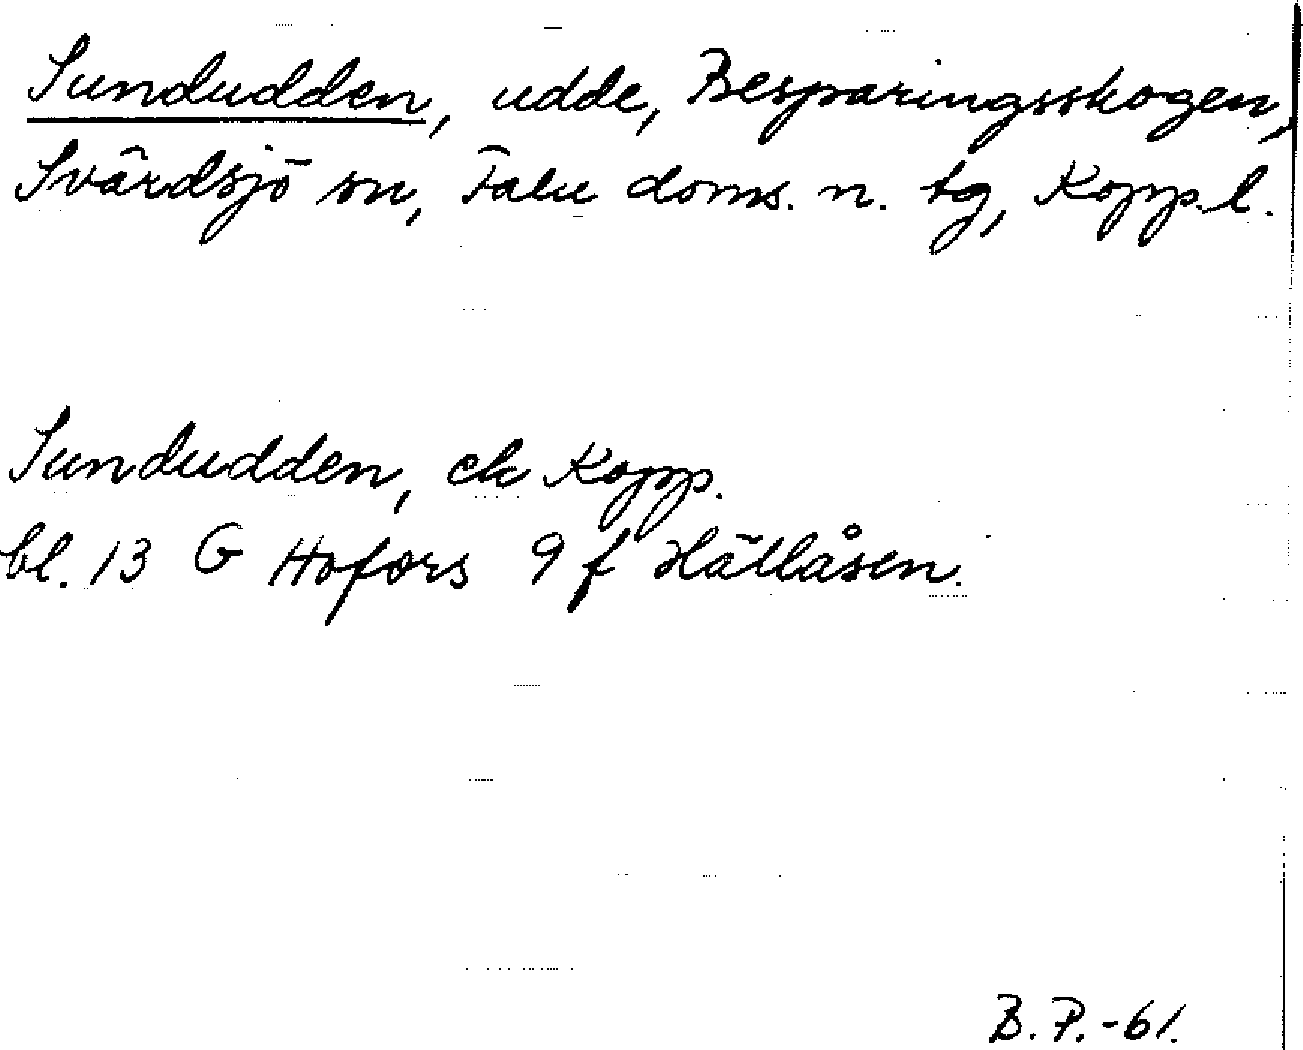 Sundudden, udde, Besparingsskogen,
Svärdsjö sn, Falu doms. n. tg, Kopp. l.
Sundudden, ek Kopp.
bl. 13 G Hofors 9 f Hällåsen.
B. P. -61.